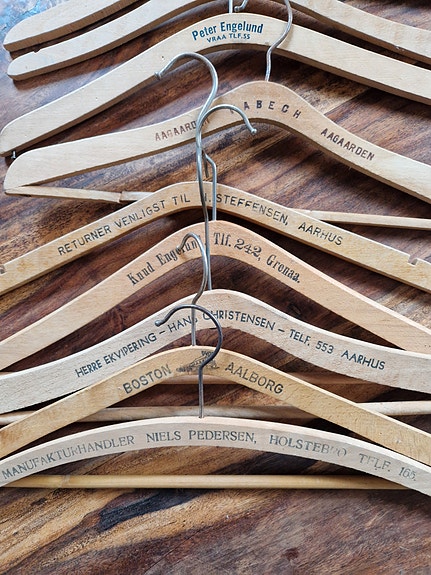 Peter Engelund
VRAA TLF. 55
AAGAARD AABECH AAGAARDEN
RETURNER VENLIGST TIL STEFFENSEN, AARHUS
Knud Engelund Tlf. 242, Grenaa.
HERRE EKVIPERING – HANS CHRISTENSEN – TELF. 553 AARHUS
BOSTON AALBORG
MANUFAKTURHANDLER NIELS PEDERSEN, HOLSTEBRO TELF. 165.